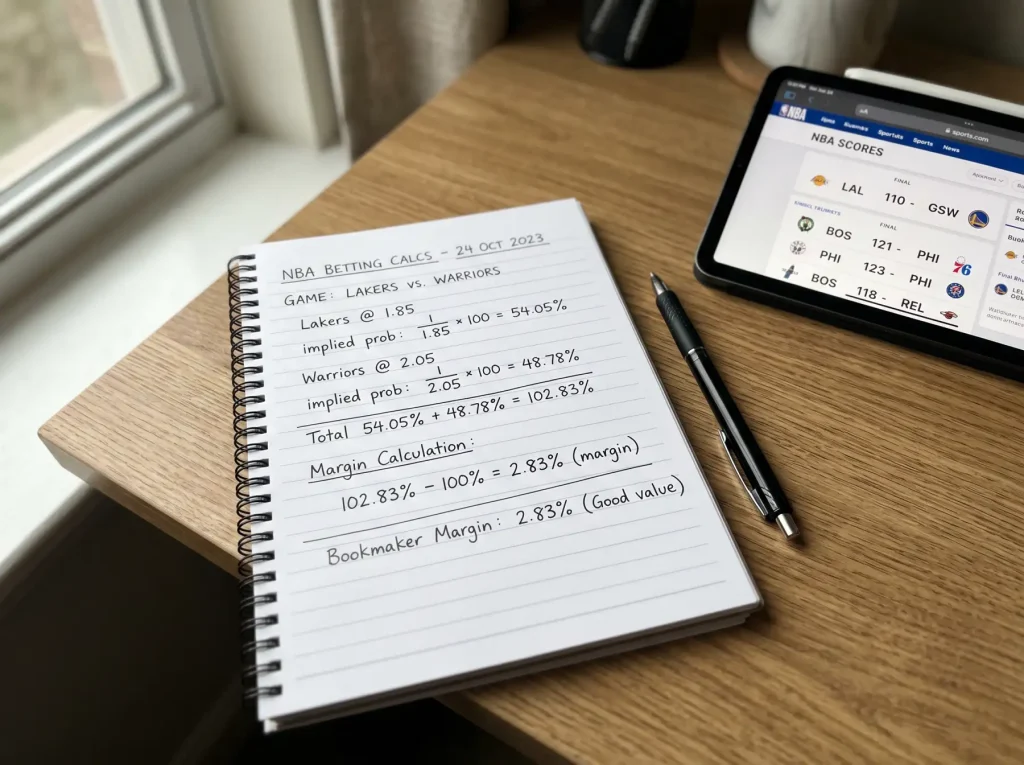 NBA BETTING CALCS – 24 OCT 2023
GAME: LAKERS VS. WARRIORS
Lakers @ 1.85
implied prob: 1/1.85 × 100 = 54.05%
Warriors @ 2.05
implied prob: 1/2.05 × 100 = 48.78%
Total 54.05% + 48.78% = 102.83%
Margin Calculation:
102.83% – 100% = 2.83% (margin)
Bookmaker Margin: 2.83% (Good value)
sports.com
NBA
Sports
News
NBA SCORES
FINAL
LAL 110 - GSW
FINAL
BOS 121 - PHI
PHI 123 - PHI
BOS 118 - REL